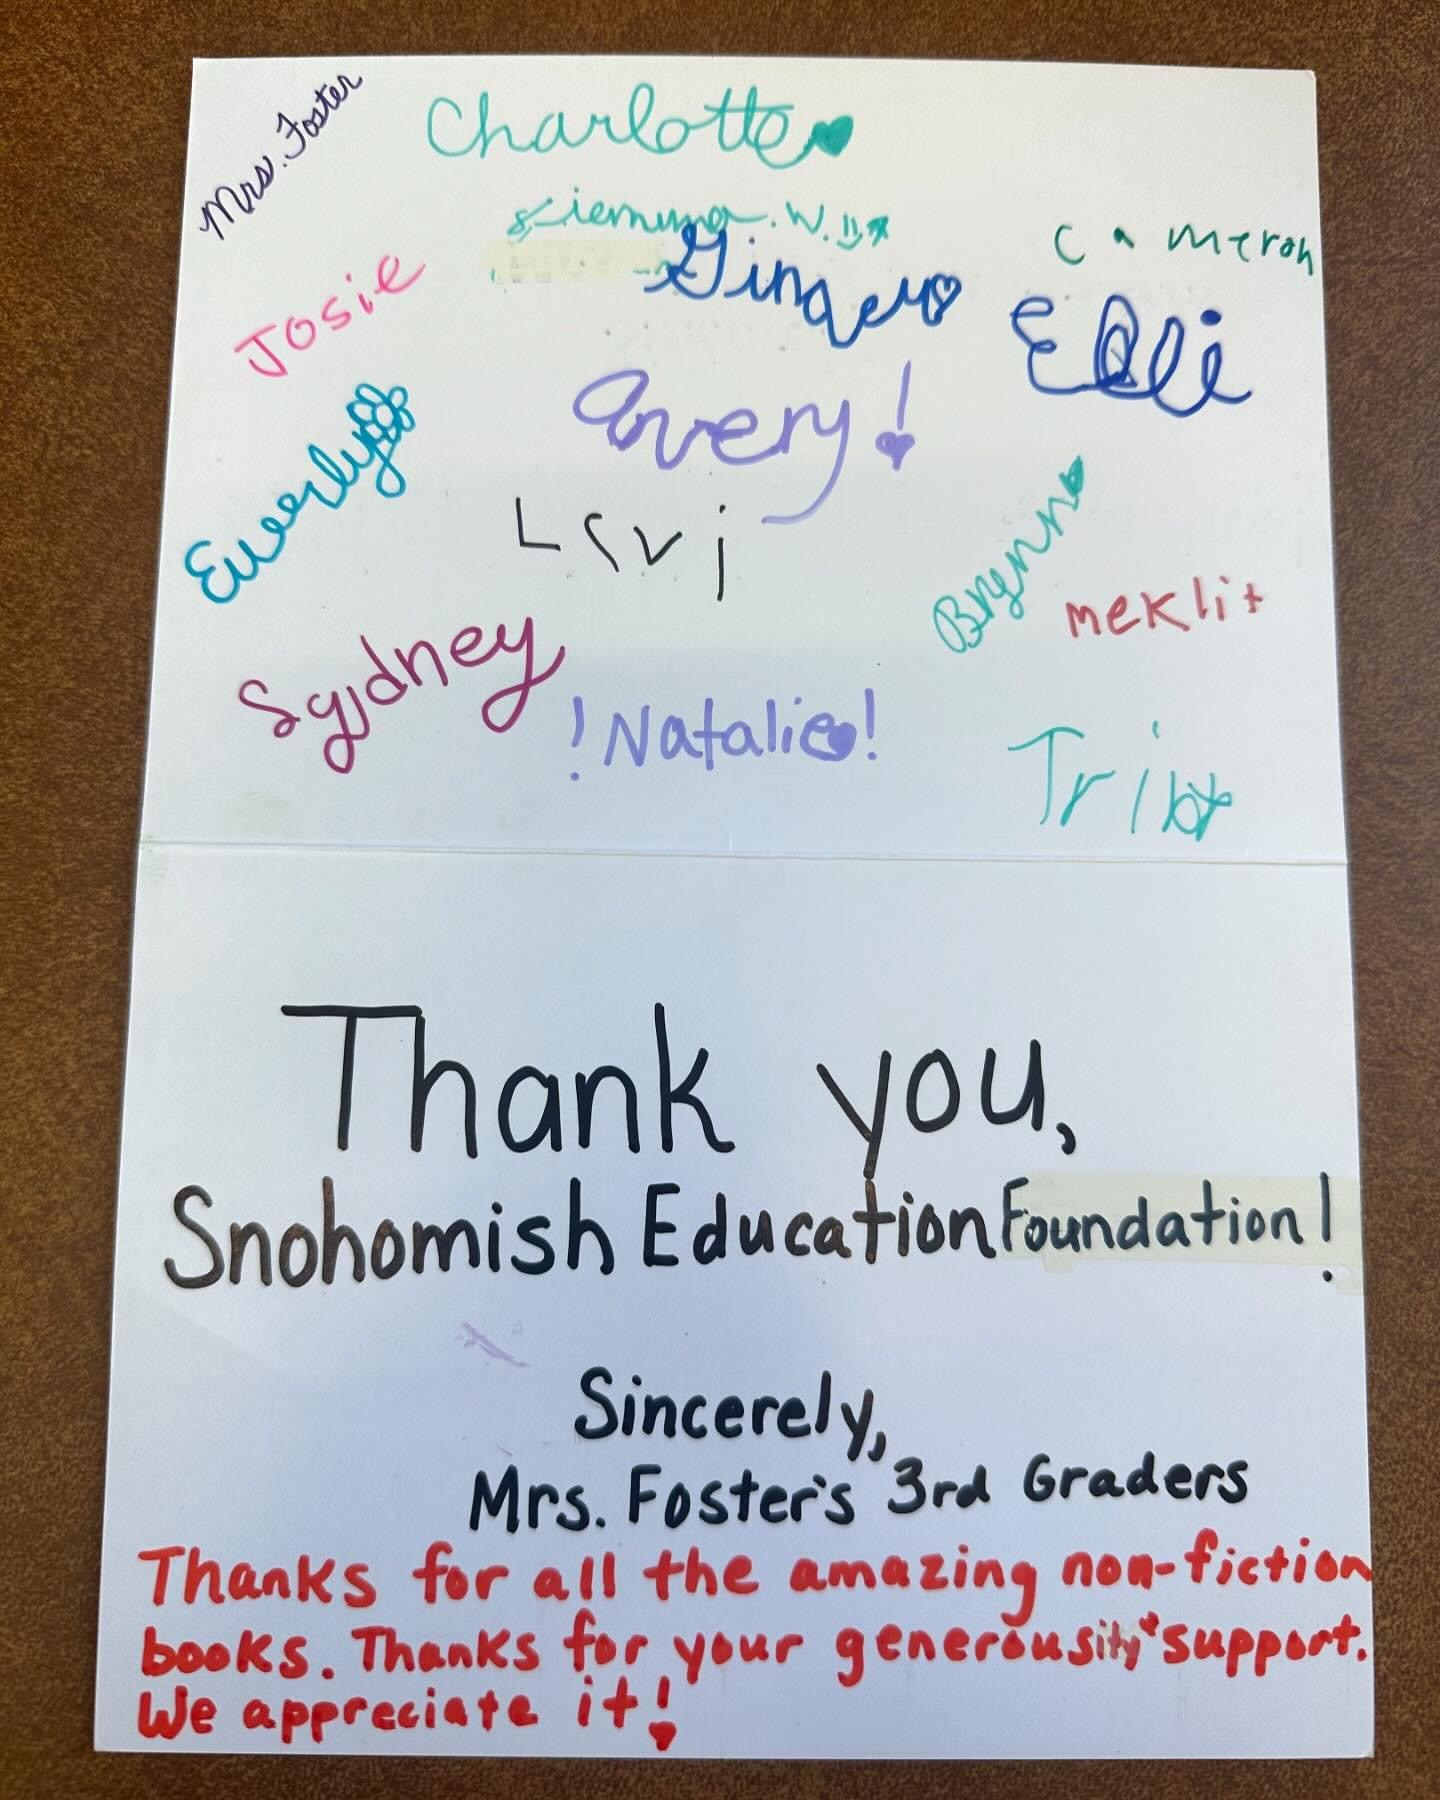 Mrs. Foster
Charlotte
Siemma. W.
Cameron
Josie
Ginger
Elli
Avery!
Everly
Brynn
meklit
Sydney
! Natalie !
Thank you,
Snohomish Education Foundation!
Sincerely,
Mrs. Foster's 3rd Graders
Thanks for all the amazing non-fiction
books. Thanks for your generousity + support.
We appreciate it!